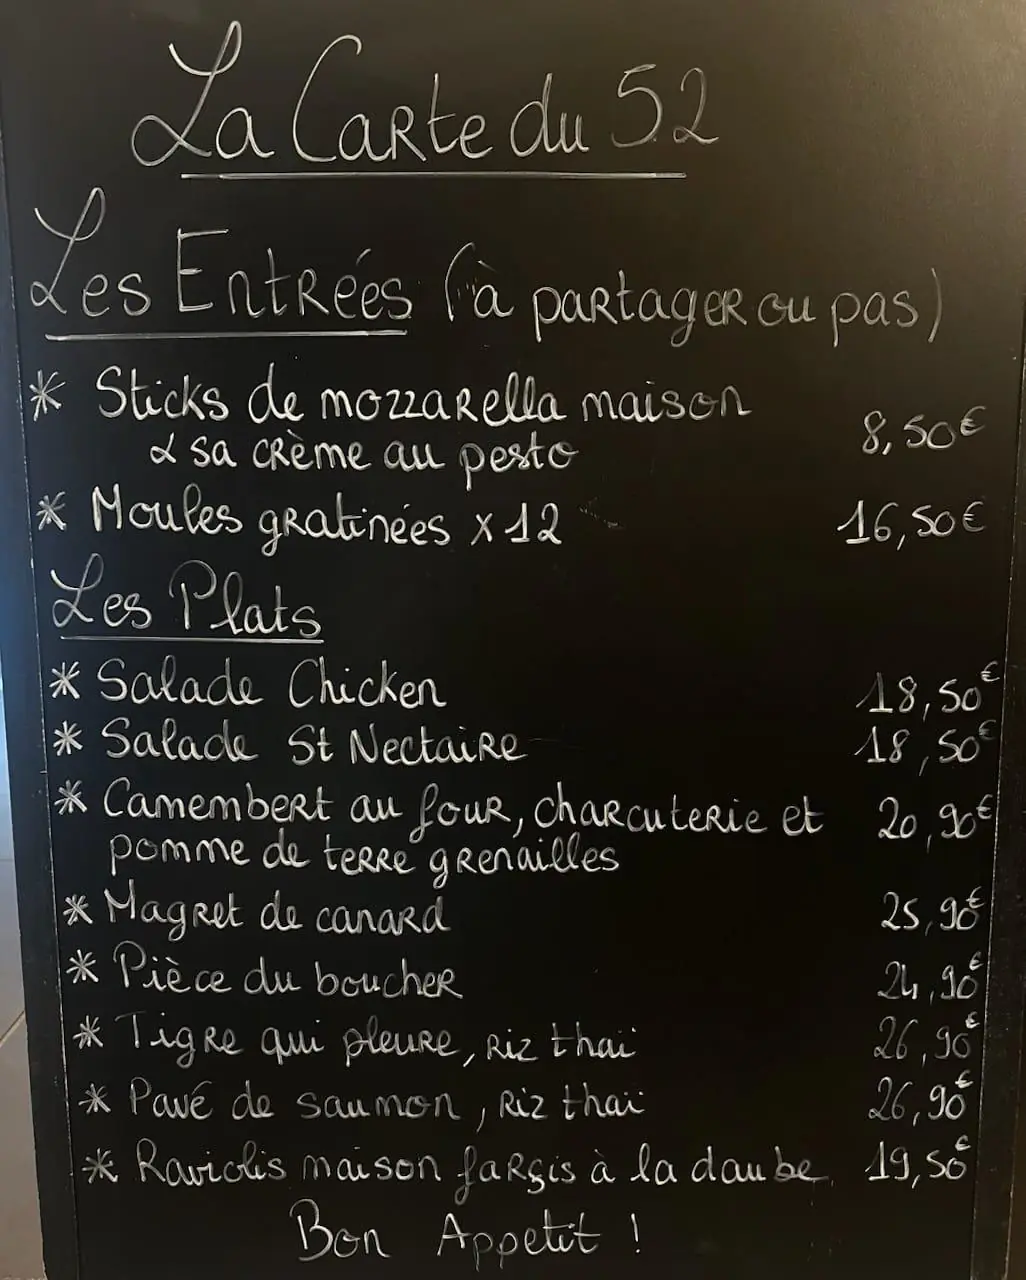 La Carte du 52
Les Entrées (à partager ou pas)
* Sticks de mozzarella maison
& sa crème au pesto 8,50€
* Moules gratinées x 12 16,50€
Les Plats
* Salade Chicken 18,50€
* Salade St Nectaire 18,50€
* Camembert au four, charcuterie et 20,90€
pomme de terre grenailles
* Magret de canard 25,90€
* Pièce du boucher 24,90€
* Tigre qui pleure, riz thaï 26,90€
* Pavé de saumon, riz thaï 26,90€
* Raviolis maison farçis à la daube 19,50€
Bon Appetit !